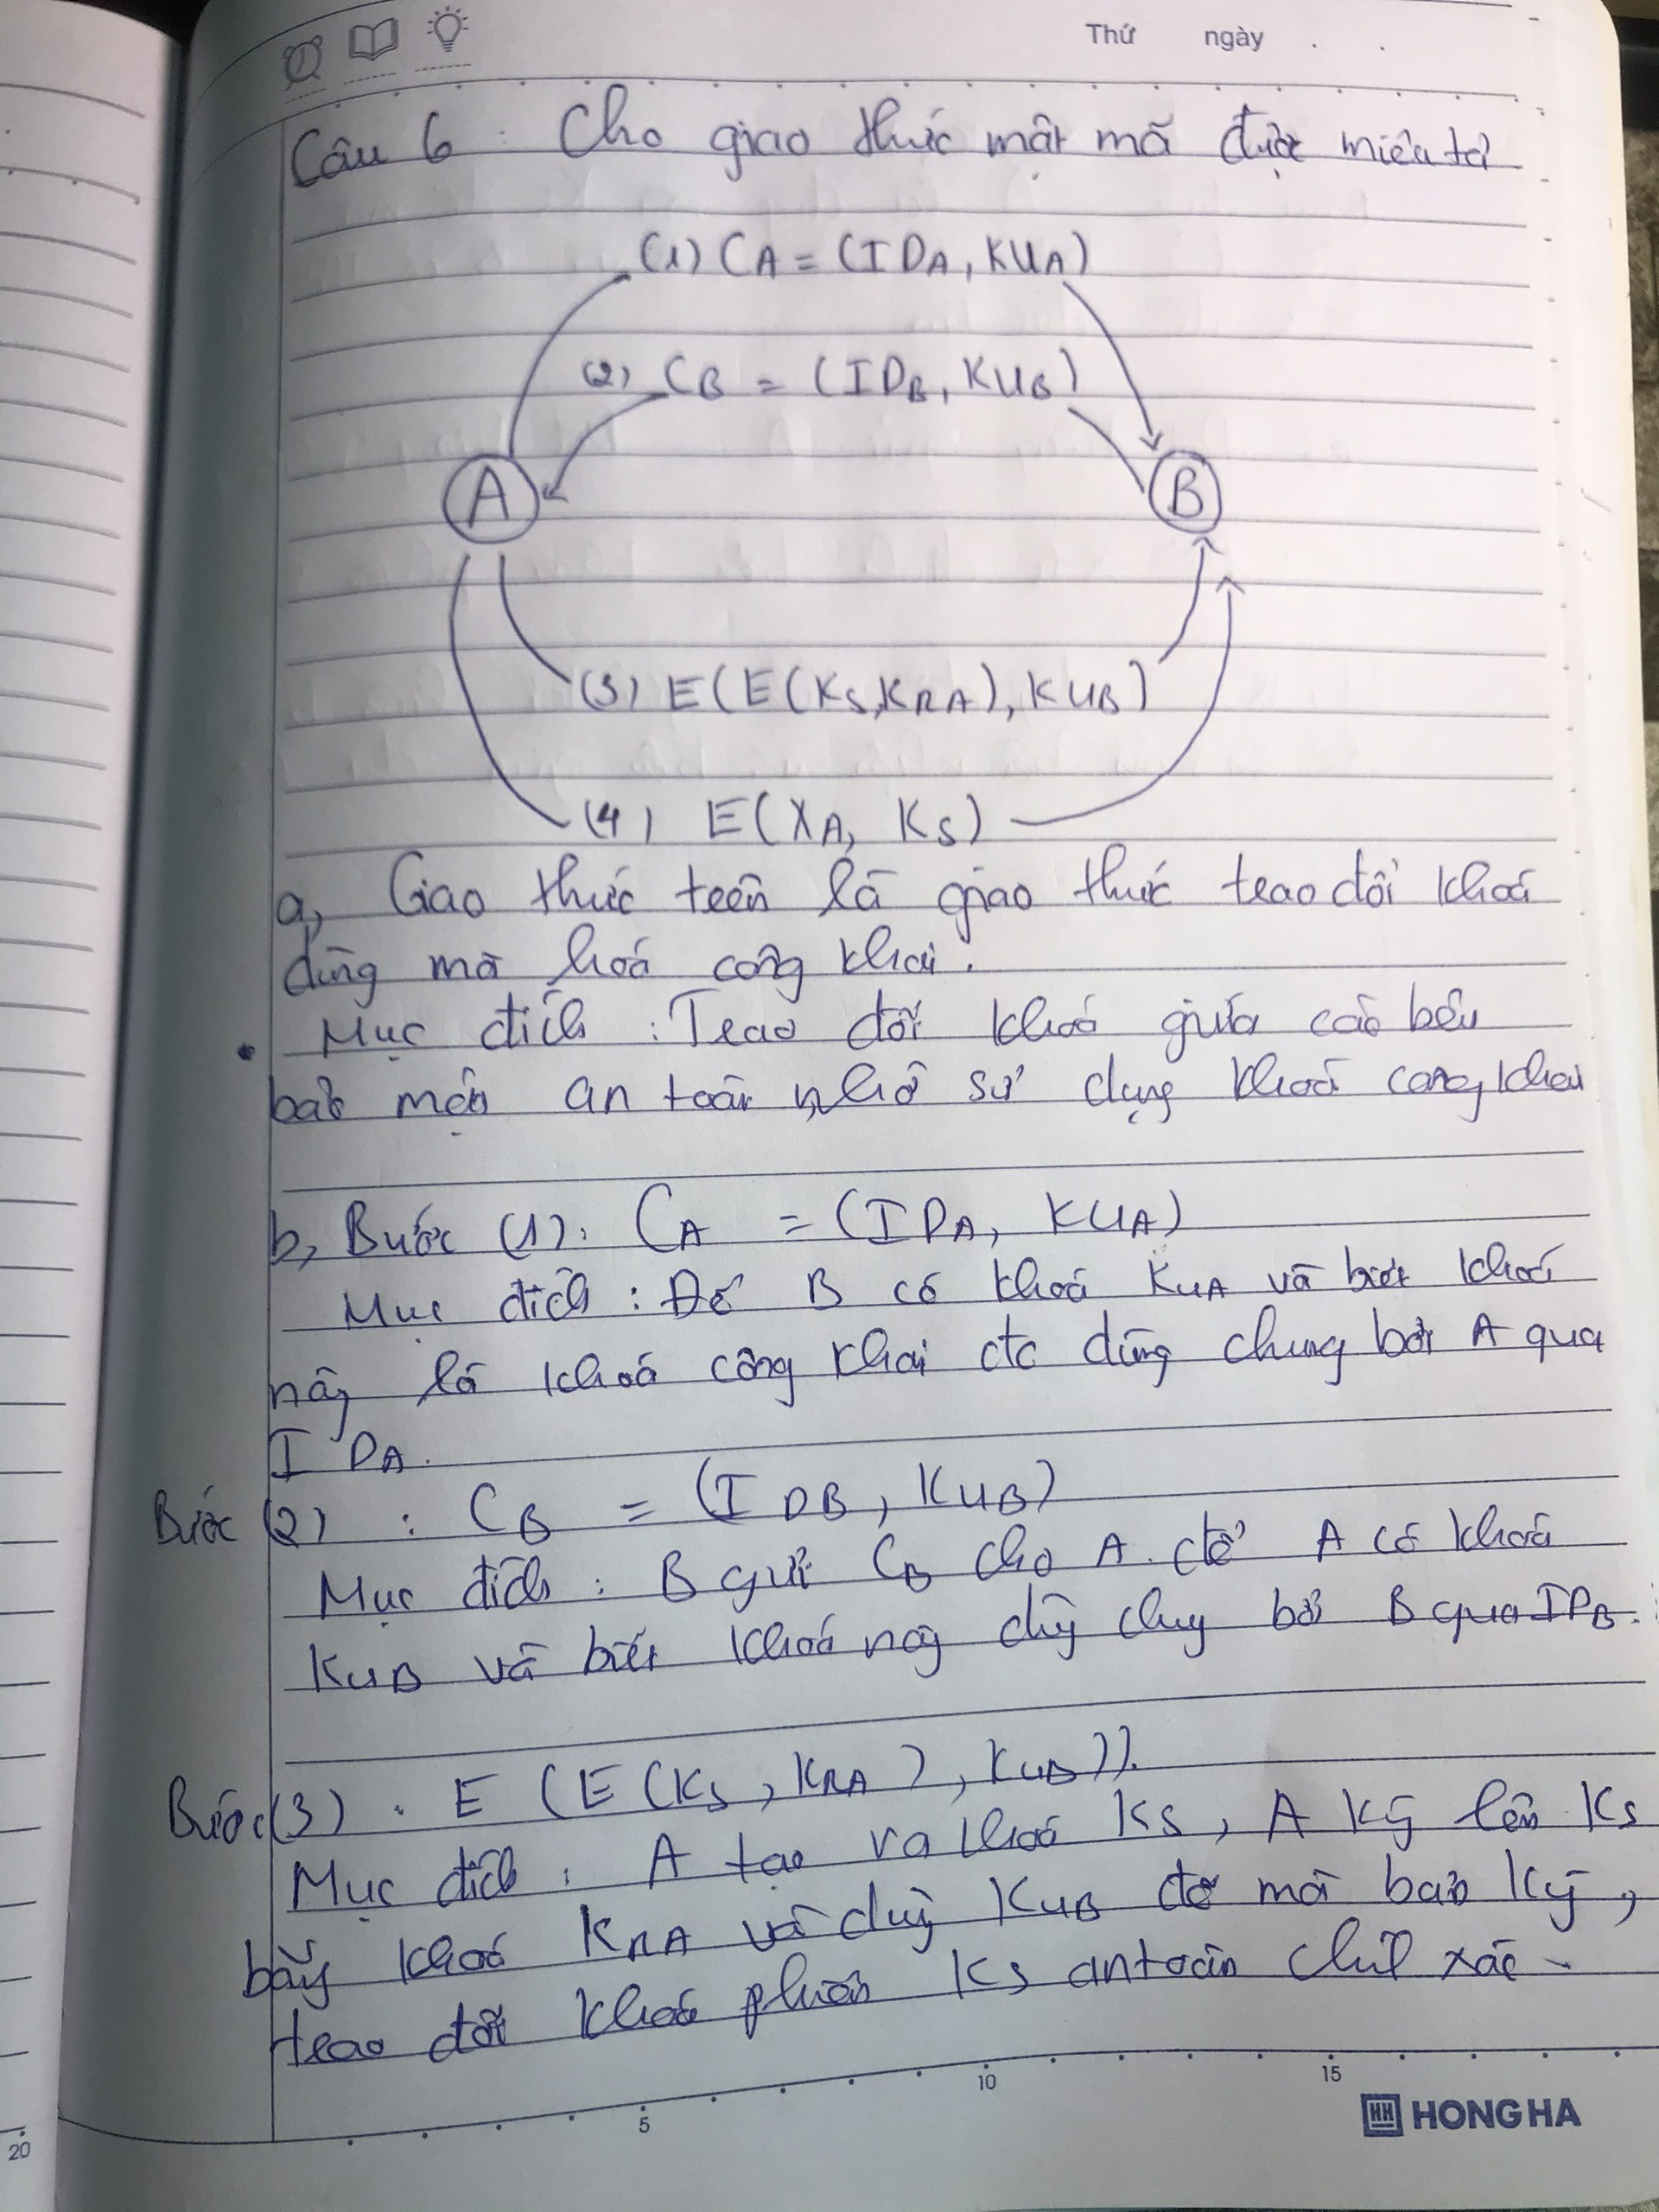 Thứ ngày . .
Câu 6 : Cho giao thức mật mã được miêu tả
(1) CA = (IDA, KUA)
(2) CB = (IDB, KUB)
A
B
(3) E(E(KS,KRA), KUB)
(4) E(XA, KS)
a, Giao thức trên là giao thức trao đổi khoá
dùng mã hoá công khai.
Mục đích : Trao đổi khoá giữa các bên
bảo mật an toàn nhờ sử dụng khoá công khai
b, Bước (1): CA = (IDA, KUA)
Mục đích : Để B có khoá KUA và biết khoá
này là khoá công khai đc dùng chung bởi A qua
IDA.
Bước (2) : CB = (IDB, KUB)
Mục đích : B gửi CB cho A. để A có khoá
KUB và biết khoá này dùng chung bởi B qua IDB.
Bước (3) : E (E(KS, KRA), KUB)).
Mục đích : A tạo ra khoá KS, A ký lên KS
bằng khoá KRA và dùng KUB để mã bản ký,
trao đổi khoá phiên KS an toàn chính xác
5
10
15
20
HH HONG HA